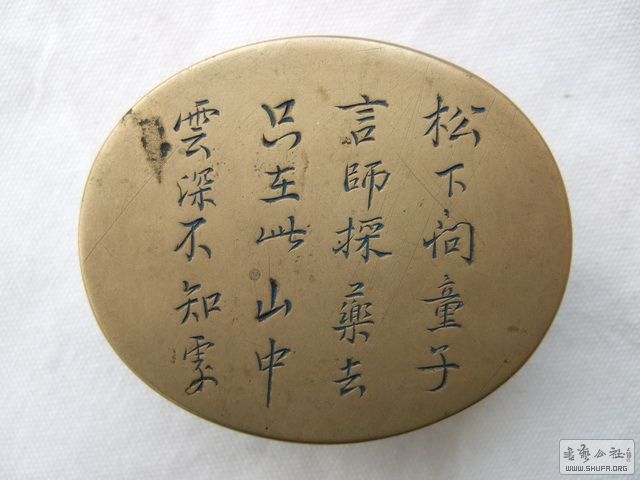 松下問童子
言師採藥去
只在此山中
雲深不知處
書法公社
WWW.SHUFA.ORG